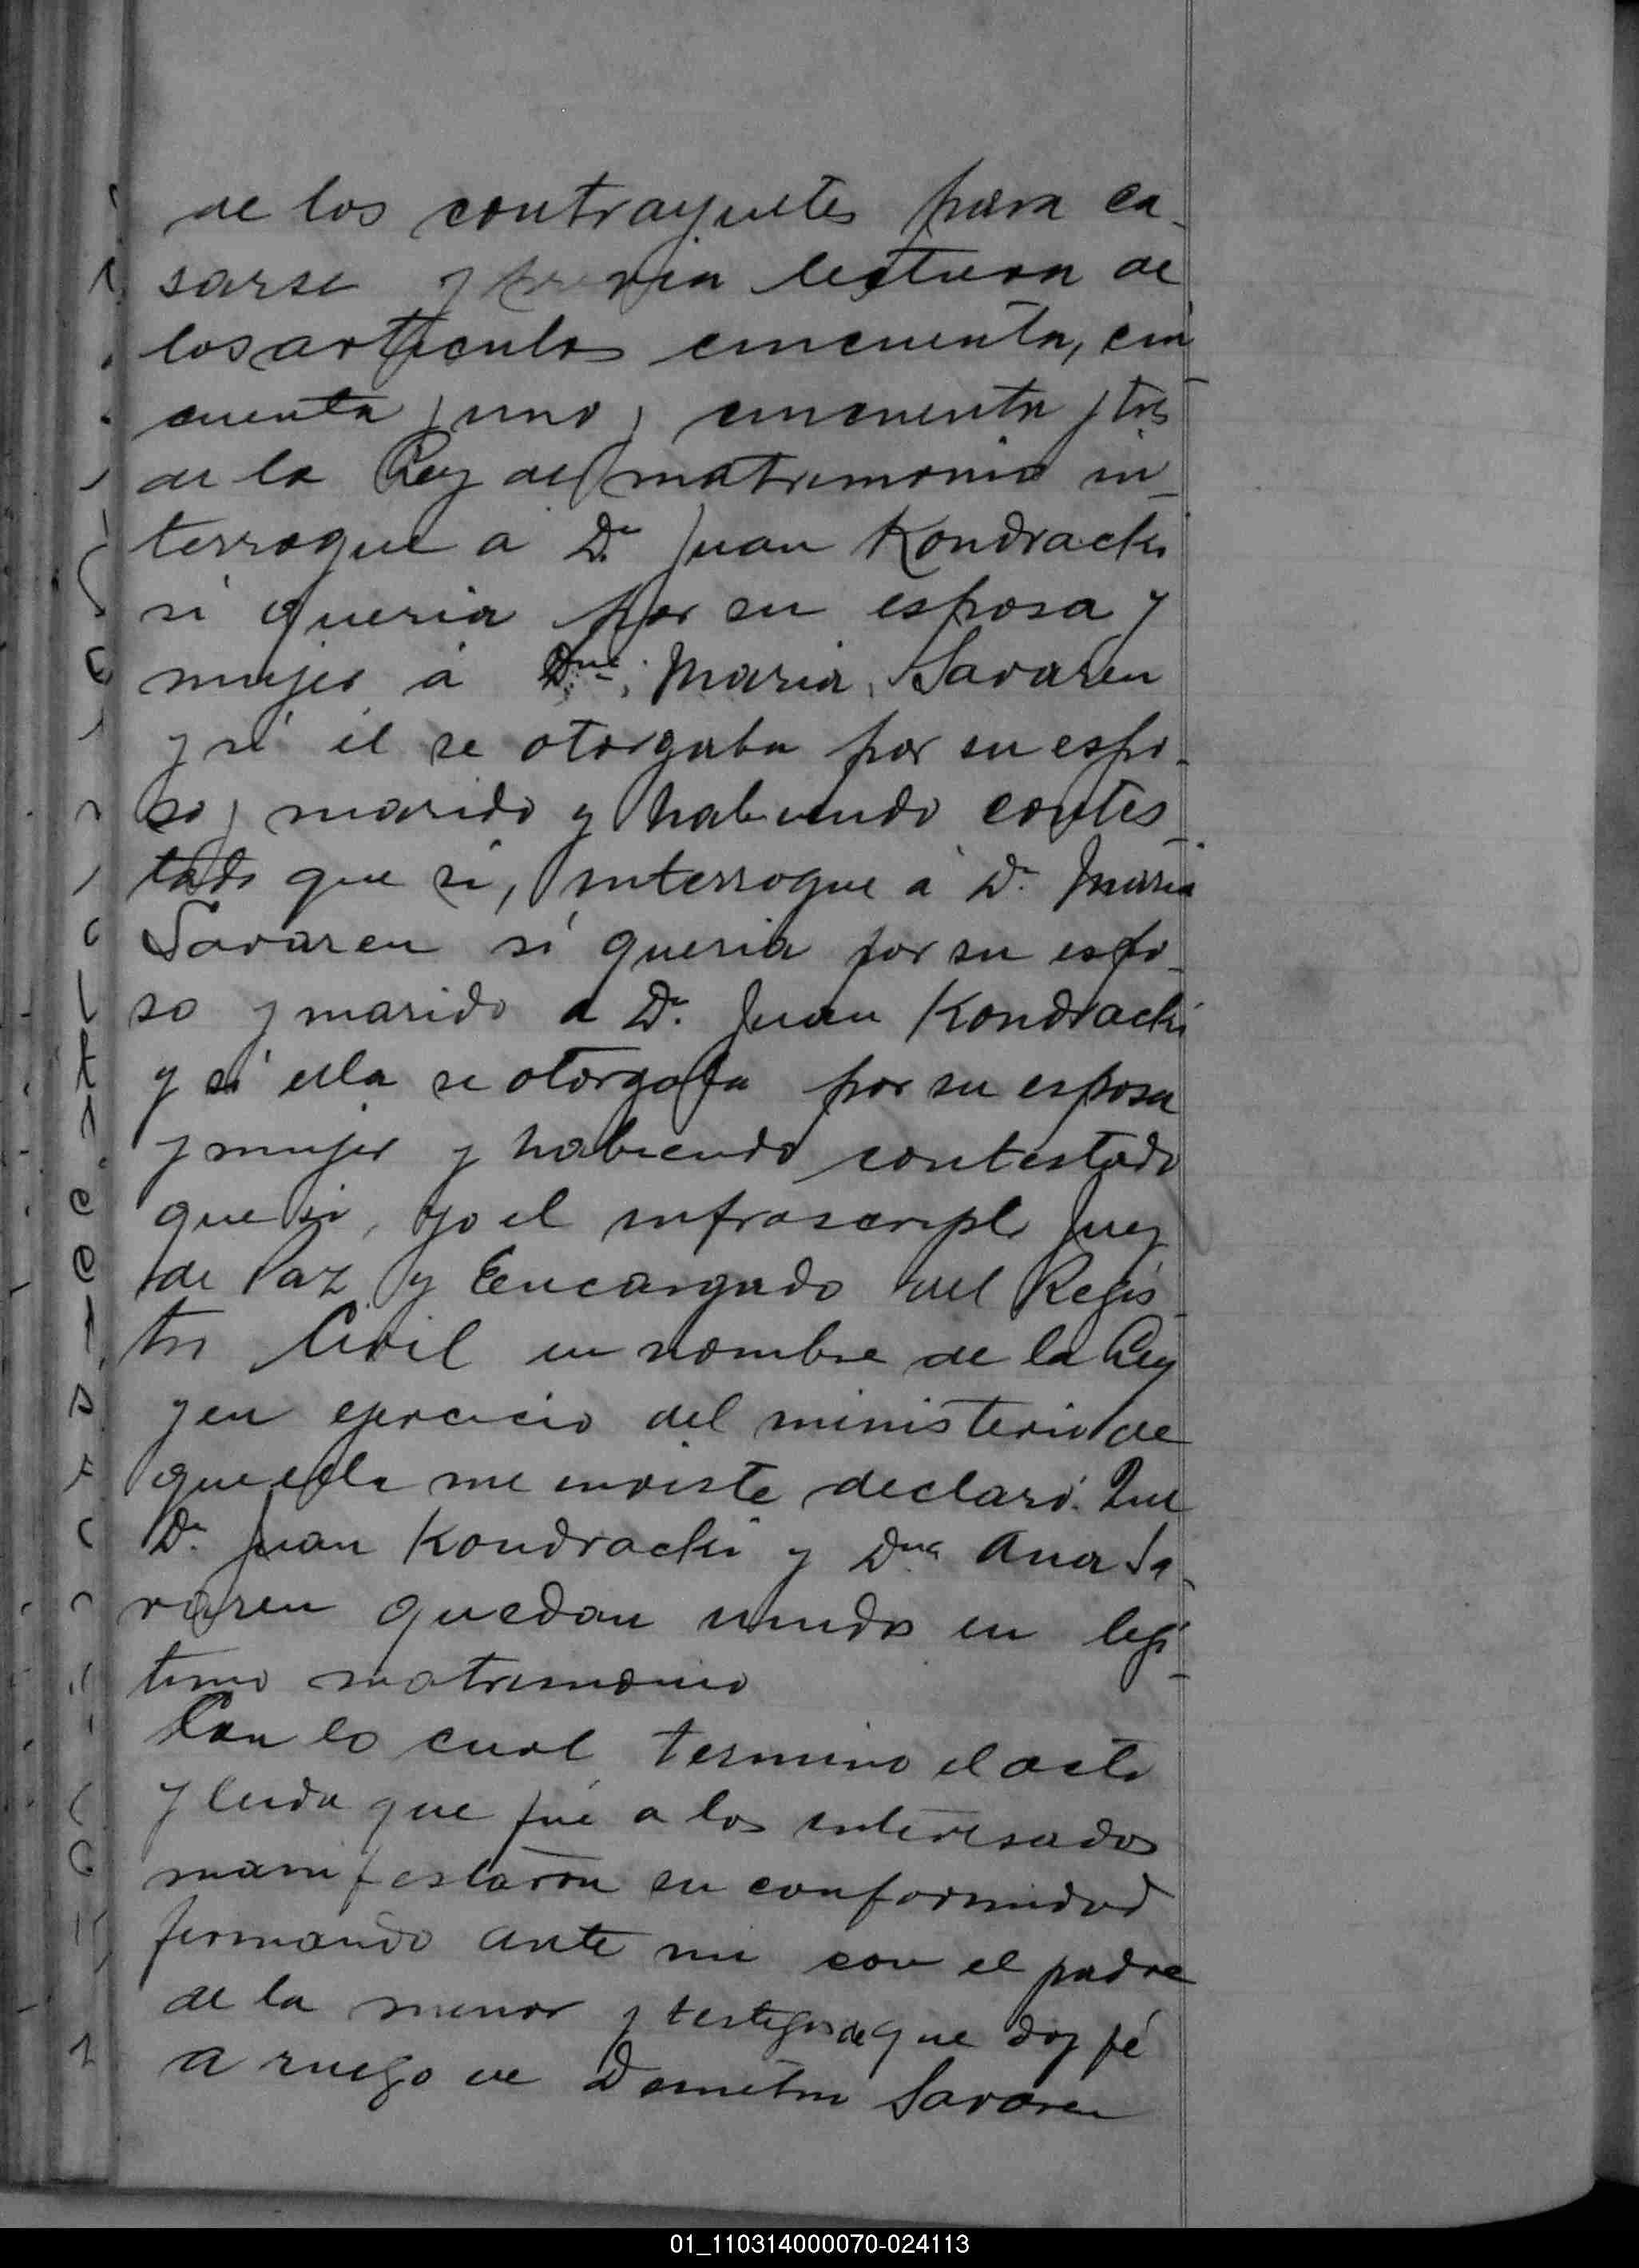 de los contrayentes para ca-
sarse y previa lectura de
los articulos cincuenta, cin
cuenta y uno y cincuenta y tres
de la Ley del matrimonio in-
terrogue a Dn Juan Kondracki
si queria por su esposa y
mujer á Dna. Maria Savaren
y si él se otorgaba por su espo-
so y marido y habiendo contes-
tado que si, interrogue a Da. Maria
Savaren si queria por su espo-
so y marido a Dn. Juan Kondracki
y si ella se otorgaba por su esposa
y mujer y habiendo contestado
que si, yo el infrascripto Juez
de Paz y Encargado del Regis-
tro Civil en nombre de la Ley
y en ejercicio del ministerio de
que ella me inviste declaró. Que
Dn. Juan Kondracki y Dna Ana Sa-
varen quedan unidos en legi-
timo matrimonio
Con lo cual termino el acto
y leida que fué a los interesados
manifestaron su conformidad
firmando ante mi con el padre
de la menor y testigos de que doy fé
A ruego de Demetrio Savaren
01_110314000070-024113